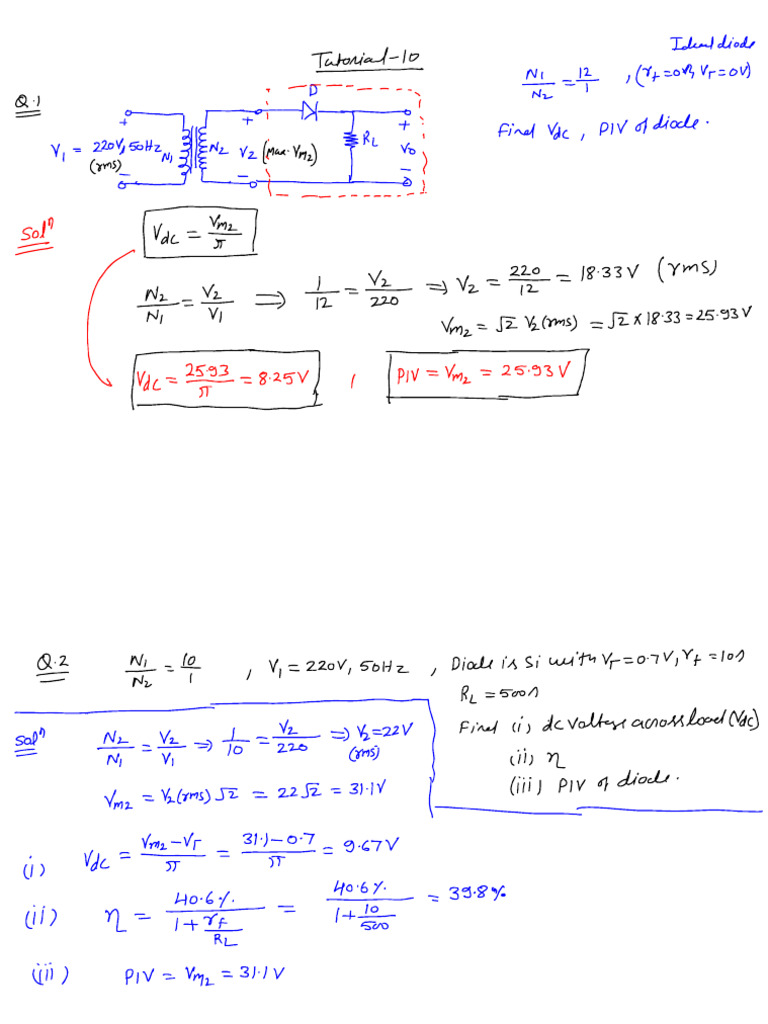 Tutorial-10
Ideal diode
N1/N2 = 12/1 , (rf = 0Ω, Vr = 0V)
Find Vdc , PIV of diode.
Q.1
D
+ + +
V1 = 220V, 50Hz N1 N2 V2 (Max. Vm2) RL Vo
(rms)
− − −
Soln
Vdc = Vm2/π
N2/N1 = V2/V1 ⟹ 1/12 = V2/220 ⟹ V2 = 220/12 = 18.33V (rms)
Vm2 = √2 V2(rms) = √2 × 18.33 = 25.93V
Vdc = 25.93/π = 8.25V , PIV = Vm2 = 25.93V
Q.2 N1/N2 = 10/1 , V1 = 220V, 50Hz , Diode is Si with Vr = 0.7V, rf = 10Ω
RL = 500Ω
Find (i) dc voltage across load (Vdc)
(ii) η
(iii) PIV of diode.
Soln N2/N1 = V2/V1 ⟹ 1/10 = V2/220 ⟹ V2 = 22V
(rms)
Vm2 = V2(rms) √2 = 22√2 = 31.1V
(i) Vdc = Vm2 − Vr/π = 31.1 − 0.7/π = 9.67V
(ii) η = 40.6%/1 + rf/RL = 40.6%/1 + 10/500 = 39.8%
(iii) PIV = Vm2 = 31.1V